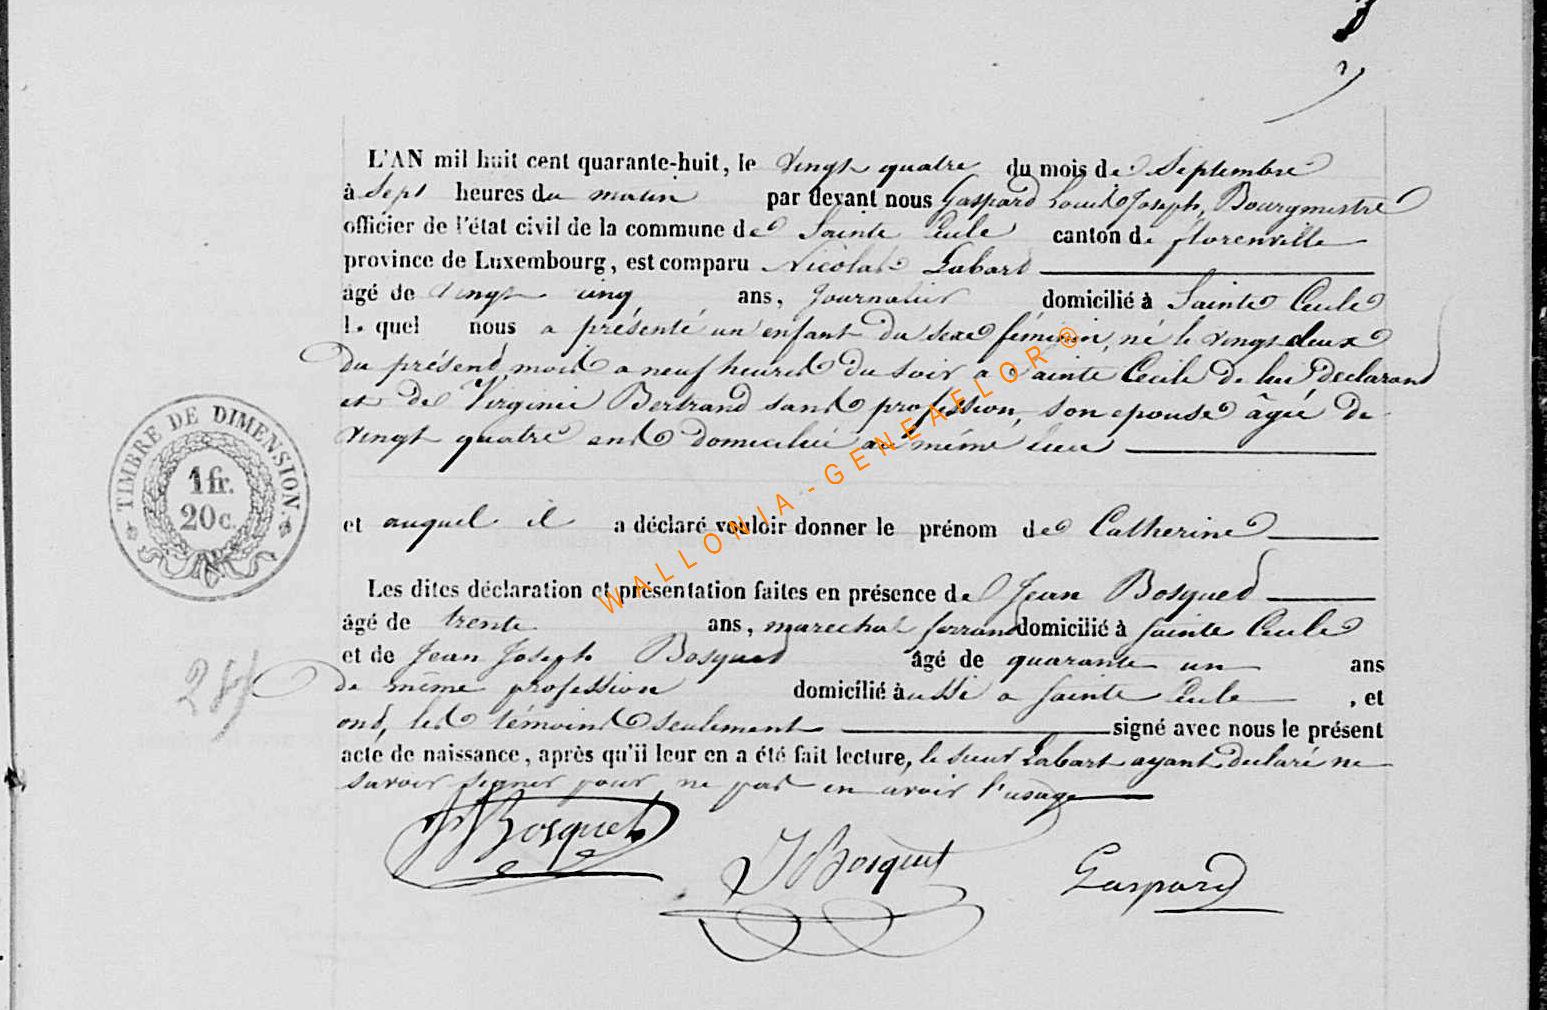 L'AN mil huit cent quarante-huit, le vingt quatre du mois de Septembre
à Sept heures du matin par devant nous Gaspard Louis Joseph, Bourgmestre
officier de l'état civil de la commune de Sainte Cecile canton de florenville
province de Luxembourg, est comparu Nicolas Labart
âgé de vingt cinq ans, Journalier domicilié à Sainte Cecile
lequel nous a présenté un enfant du sexe féminin, né le vingt deux
du présent mois a neuf heures du soir a Sainte Cecile de lui Declarant
et de Virginie Bertrand sans profession, son epouse âgée de
vingt quatre ans domiciliée au même lieu
et auquel il a déclaré vouloir donner le prénom de Catherine
Les dites déclaration et présentation faites en présence de Jean Bosquet
âgé de trente ans, marechal ferrant domicilié à Sainte Cecile
et de Jean Joseph Bosquet âgé de quarante un ans
de même profession domicilié aussi a Sainte Cecile, et
ont, les témoins seulement signé avec nous le présent
acte de naissance, après qu'il leur en a été fait lecture, le sieur Labart ayant declaré ne
savoir signer pour ne pas en avoir l'usage
Bosquet
J Bosquet
Gaspard
TIMBRE DE DIMENSION
1 fr.
20 c.
WALLONIA - GENEAFLOR ®